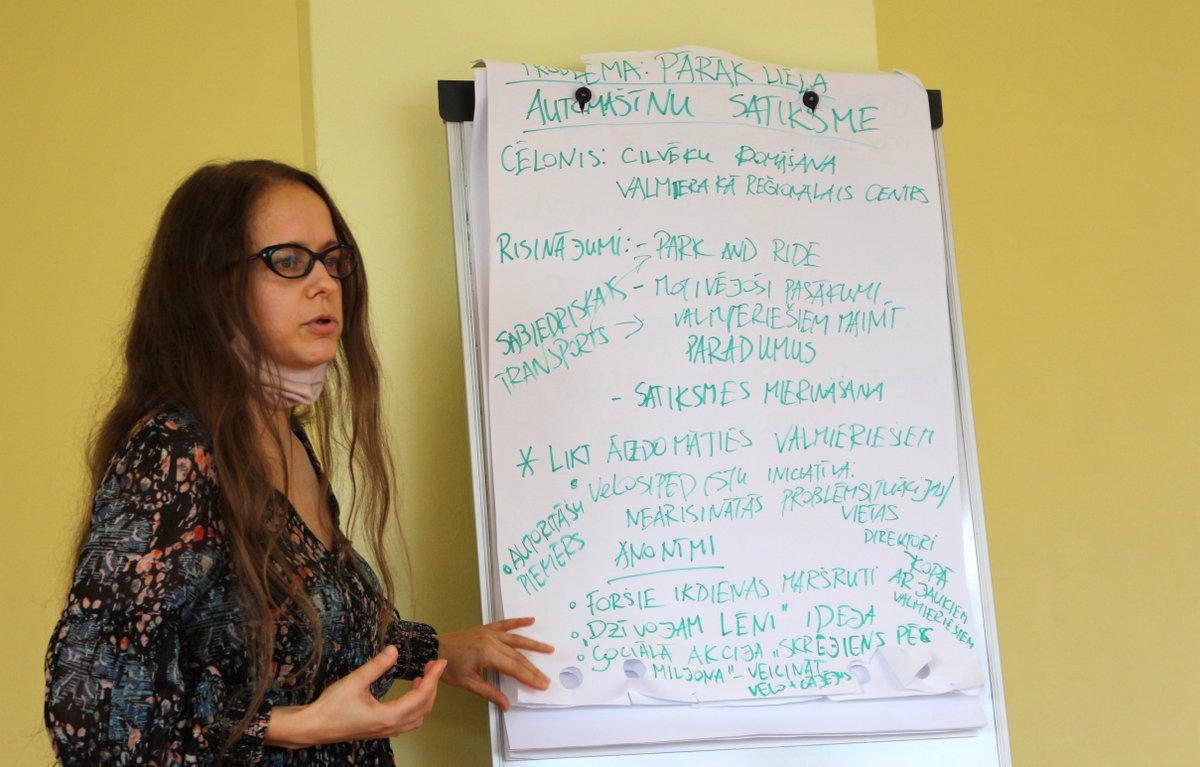 PROBLĒMA: PĀRĀK LIELA
AUTOMAŠĪNU SATIKSME
CĒLONIS: CILVĒKU DOMĀŠANA
VALMIERA KĀ REĢIONĀLAIS CENTRS
RISINĀJUMI: - PARK AND RIDE
SABIEDRISKAIS
TRANSPORTS
- MOTIVĒJOŠI PASĀKUMI
VALMIERIEŠIEM MAINĪT
PARADUMUS
- SATIKSMES MIERINĀŠANA
* LIKT AIZDOMĀTIES VALMIERIEŠIEM
• VELOSIPĒDISTU INICIATĪVA:
NEATRISINĀTĀS PROBLĒMSITUĀCIJAS/
VIETAS
• AUTORITĀŠU
PIEMĒRS
ANONĪMI
DIREKTORI
KOPĀ
AR JAUKIEM
VALMIERIEŠIEM
• FORŠIE IKDIENAS MARŠRUTI
• "DZĪVOJAM LĒNI" IDEJA
• SOCIĀLĀ AKCIJA „SKRĒJIENS PĒC
MILJONA" - VEICINĀT
VELO + GĀJĒJUS